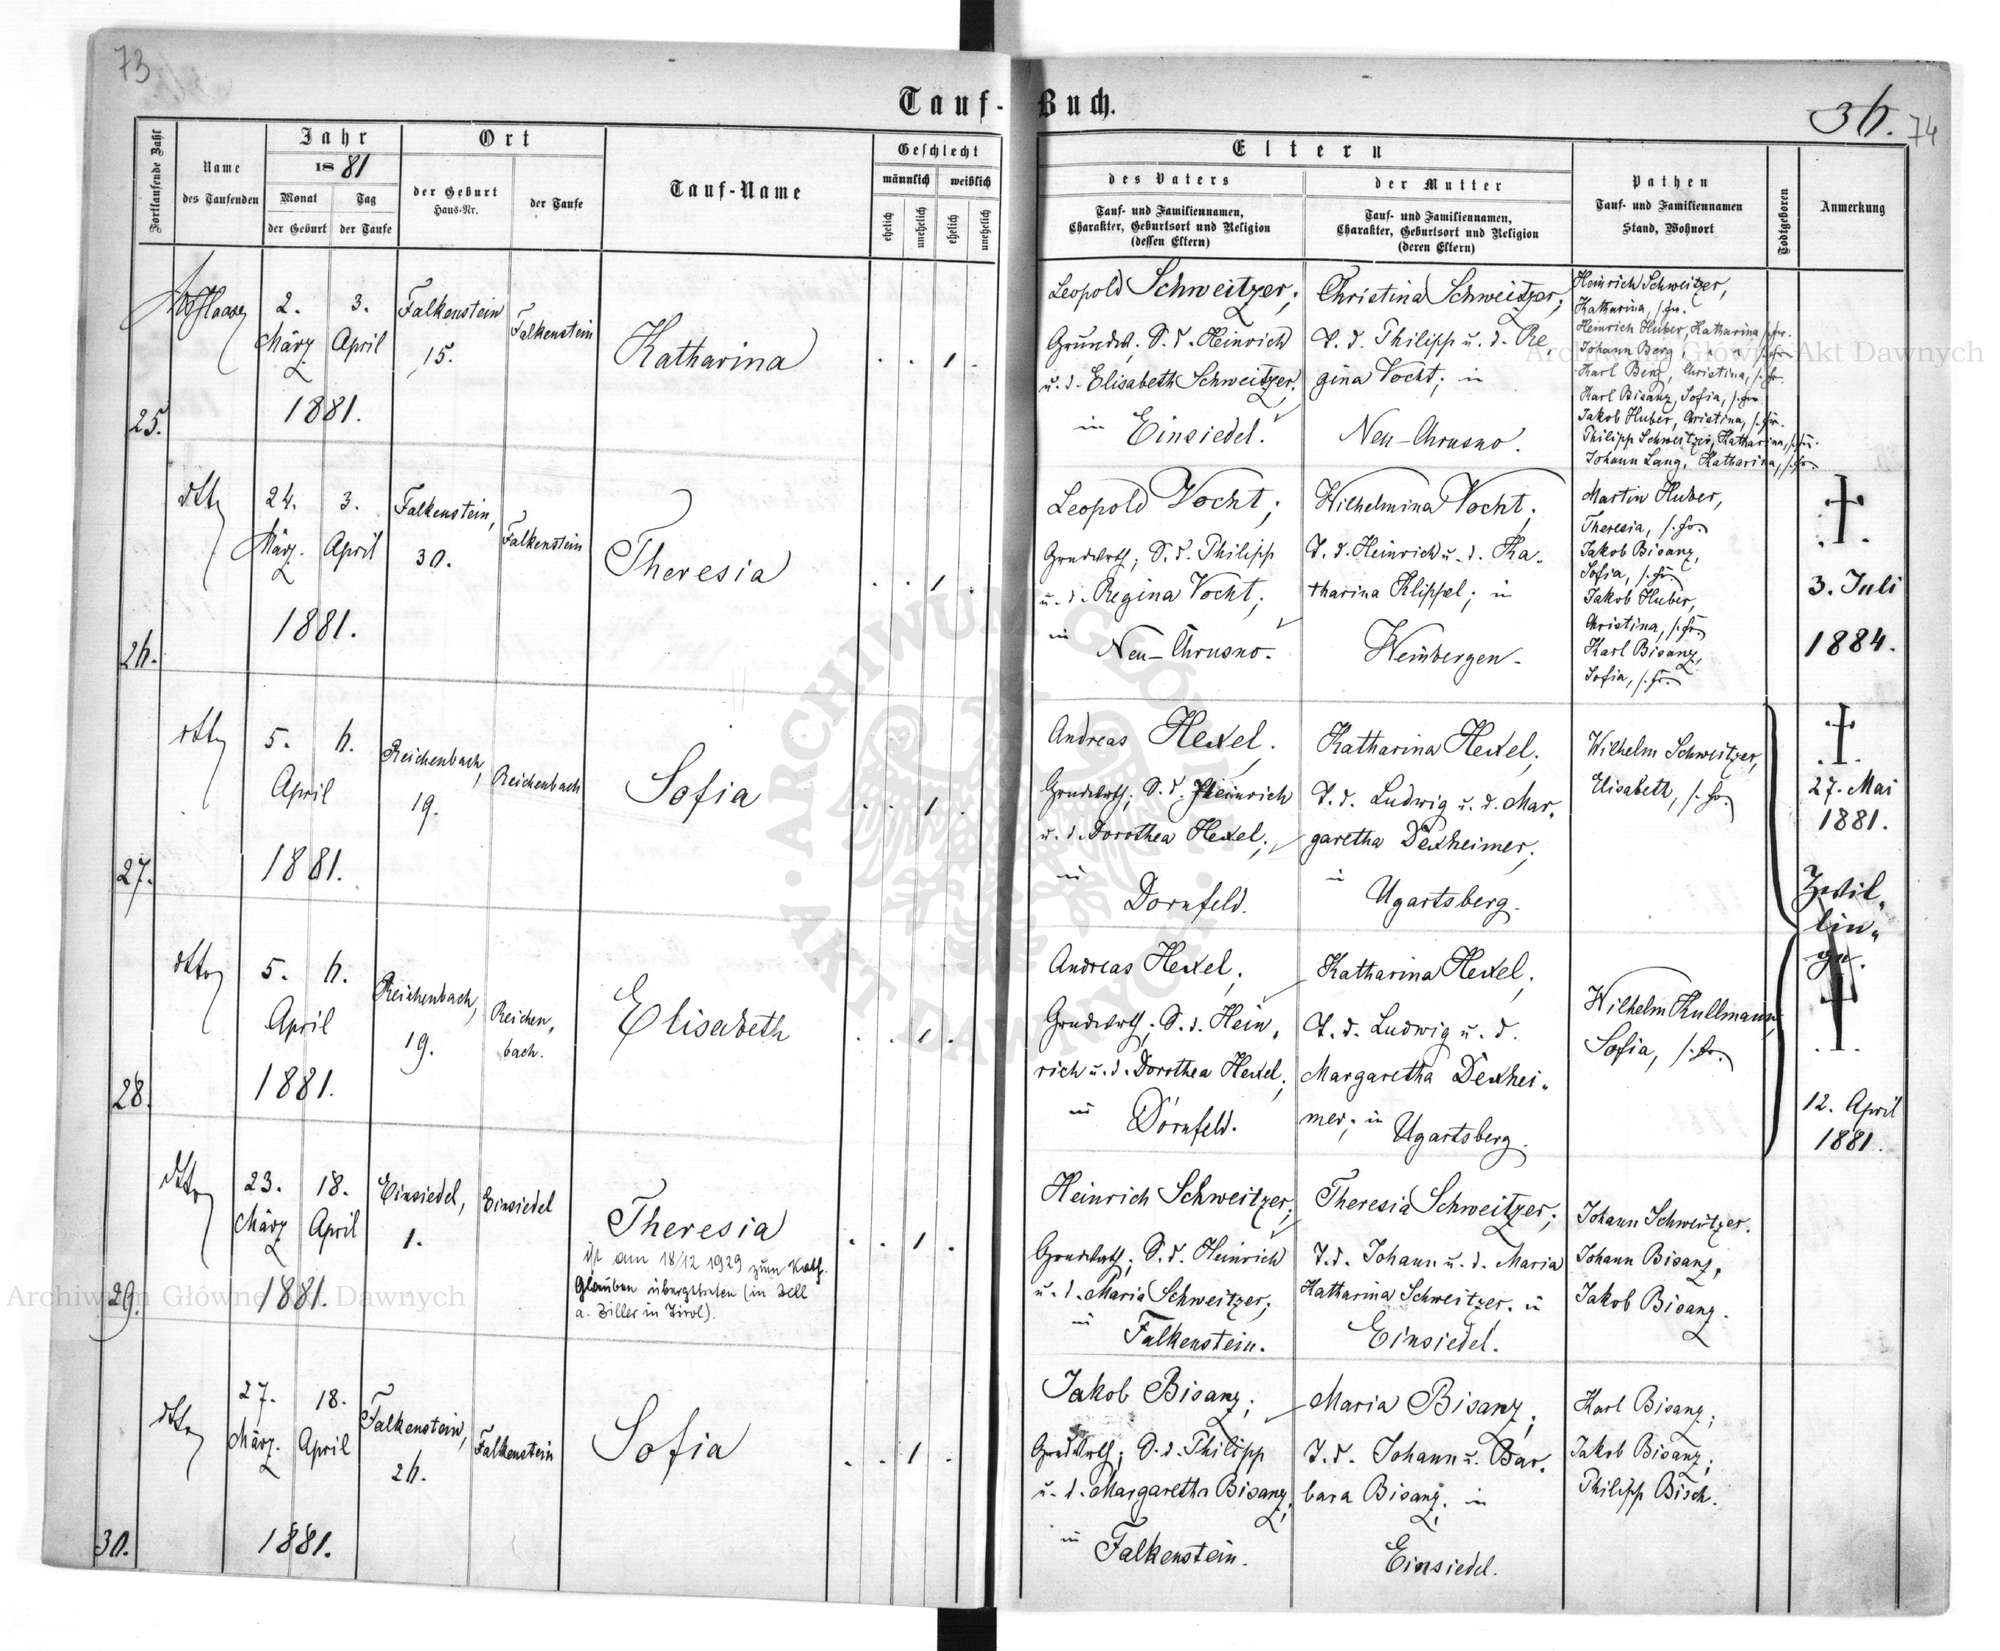 73
Tauf-Buch.
36.
74
Fortlaufende Zahl
Name
des Taufenden
Jahr
1881
Monat
der Geburt
Tag
der Taufe
Ort
der Geburt
Haus-Nr.
der Taufe
Tauf-Name
Geschlecht
männlich
weiblich
ehelich
unehelich
ehelich
unehelich
Eltern
des Vaters
Tauf- und Familiennamen,
Charakter, Geburtsort und Religion
(dessen Eltern)
der Mutter
Tauf- und Familiennamen,
Charakter, Geburtsort und Religion
(deren Eltern)
Pathen
Tauf- und Familiennamen
Stand, Wohnort
Todtgeboren
Anmerkung
25.
2.
März
3.
April
1881.
Falkenstein
15.
Falkenstein
Katharina
1
Leopold Schweitzer;
S. d. Heinrich
u. d. Elisabeth Schweitzer,
in Einsiedel.
Christina Schweitzer;
T. d. Philipp u. d. Re-
gina Vocht; in
Neu-Chrusno.
Heinrich Schweitzer,
Katharina,
Heinrich Huber, Katharina
Johann Berg
Karl Berg, Christina,
Karl Bisanz, Sofia,
Jakob Huber, Christina,
Philipp Schweitzer, Katharina,
Johann Lang, Katharina,
26.
dtto
24.
März.
3.
April
1881.
Falkenstein,
30.
Falkenstein
Theresia
1
Leopold Vocht;
Grndwrth; S. d. Philipp
u. d. Regina Vocht;
in Neu-Chrusno.
Wilhelmina Vocht;
T. d. Heinrich u. d. Ka-
tharina Klippel; in
Weinbergen.
Martin Huber,
Theresia,
Jakob Bisanz,
Sofia,
Jakob Huber,
Christina,
Karl Bisanz,
Sofia,
3. Juli
1884.
27.
dtto
5.
6.
April
1881.
Reichenbach,
19.
Reichenbach
Sofia
1
Andreas Hexel;
Grndwrth; S. d. Heinrich
u. d. Dorothea Hexel;
in
Dornfeld.
Katharina Hexel;
T. d. Ludwig u. d. Mar-
garetha Dexheimer;
in
Ugartsberg.
Wilhelm Schweitzer,
Elisabeth,
27. Mai
1881.
Zwil-
lin-
ge.
28.
dtto
5.
6.
April
1881.
Reichenbach,
19.
Reichen-
bach.
Elisabeth
1
Andreas Hexel;
Grndwrth; S. d. Hein-
rich u. d. Dorothea Hexel;
in
Dornfeld.
Katharina Hexel;
T. d. Ludwig u. d.
Margaretha Dexhei-
mer; in
Ugartsberg.
Wilhelm Kullmann,
Sofia,
12. April
1881.
29.
dtto
23.
März
18.
April
1881.
Einsiedel,
1.
Einsiedel
Theresia
ist am 18/12 1929 zum Kath.
Glauben übergetreten (in Zell
a. Ziller in Tirol).
1
Heinrich Schweitzer;
Grndwrth; S. d. Heinrich
u. d. Maria Schweitzer;
in
Falkenstein.
Theresia Schweitzer;
T. d. Johann u. d. Maria
Katharina Schweitzer, in
Einsiedel.
Johann Schweitzer.
Johann Bisanz,
Jakob Bisanz.
30.
dtto
27.
März.
18.
April
1881.
Falkenstein,
26.
Falkenstein
Sofia
1
Jakob Bisanz;
Grndwrth; S. d. Philipp
u. d. Margaretha Bisanz;
in
Falkenstein.
Maria Bisanz;
T. d. Johann u. Bar-
bara Bisanz, in
Einsiedel.
Karl Bisanz;
Jakob Bisanz;
Philipp Bisch.
Archiwum Główne Akt Dawnych
Archiwum Główne Akt Dawnych
ARCHIWUM GŁÓWNE · AKT DAWNYCH ·